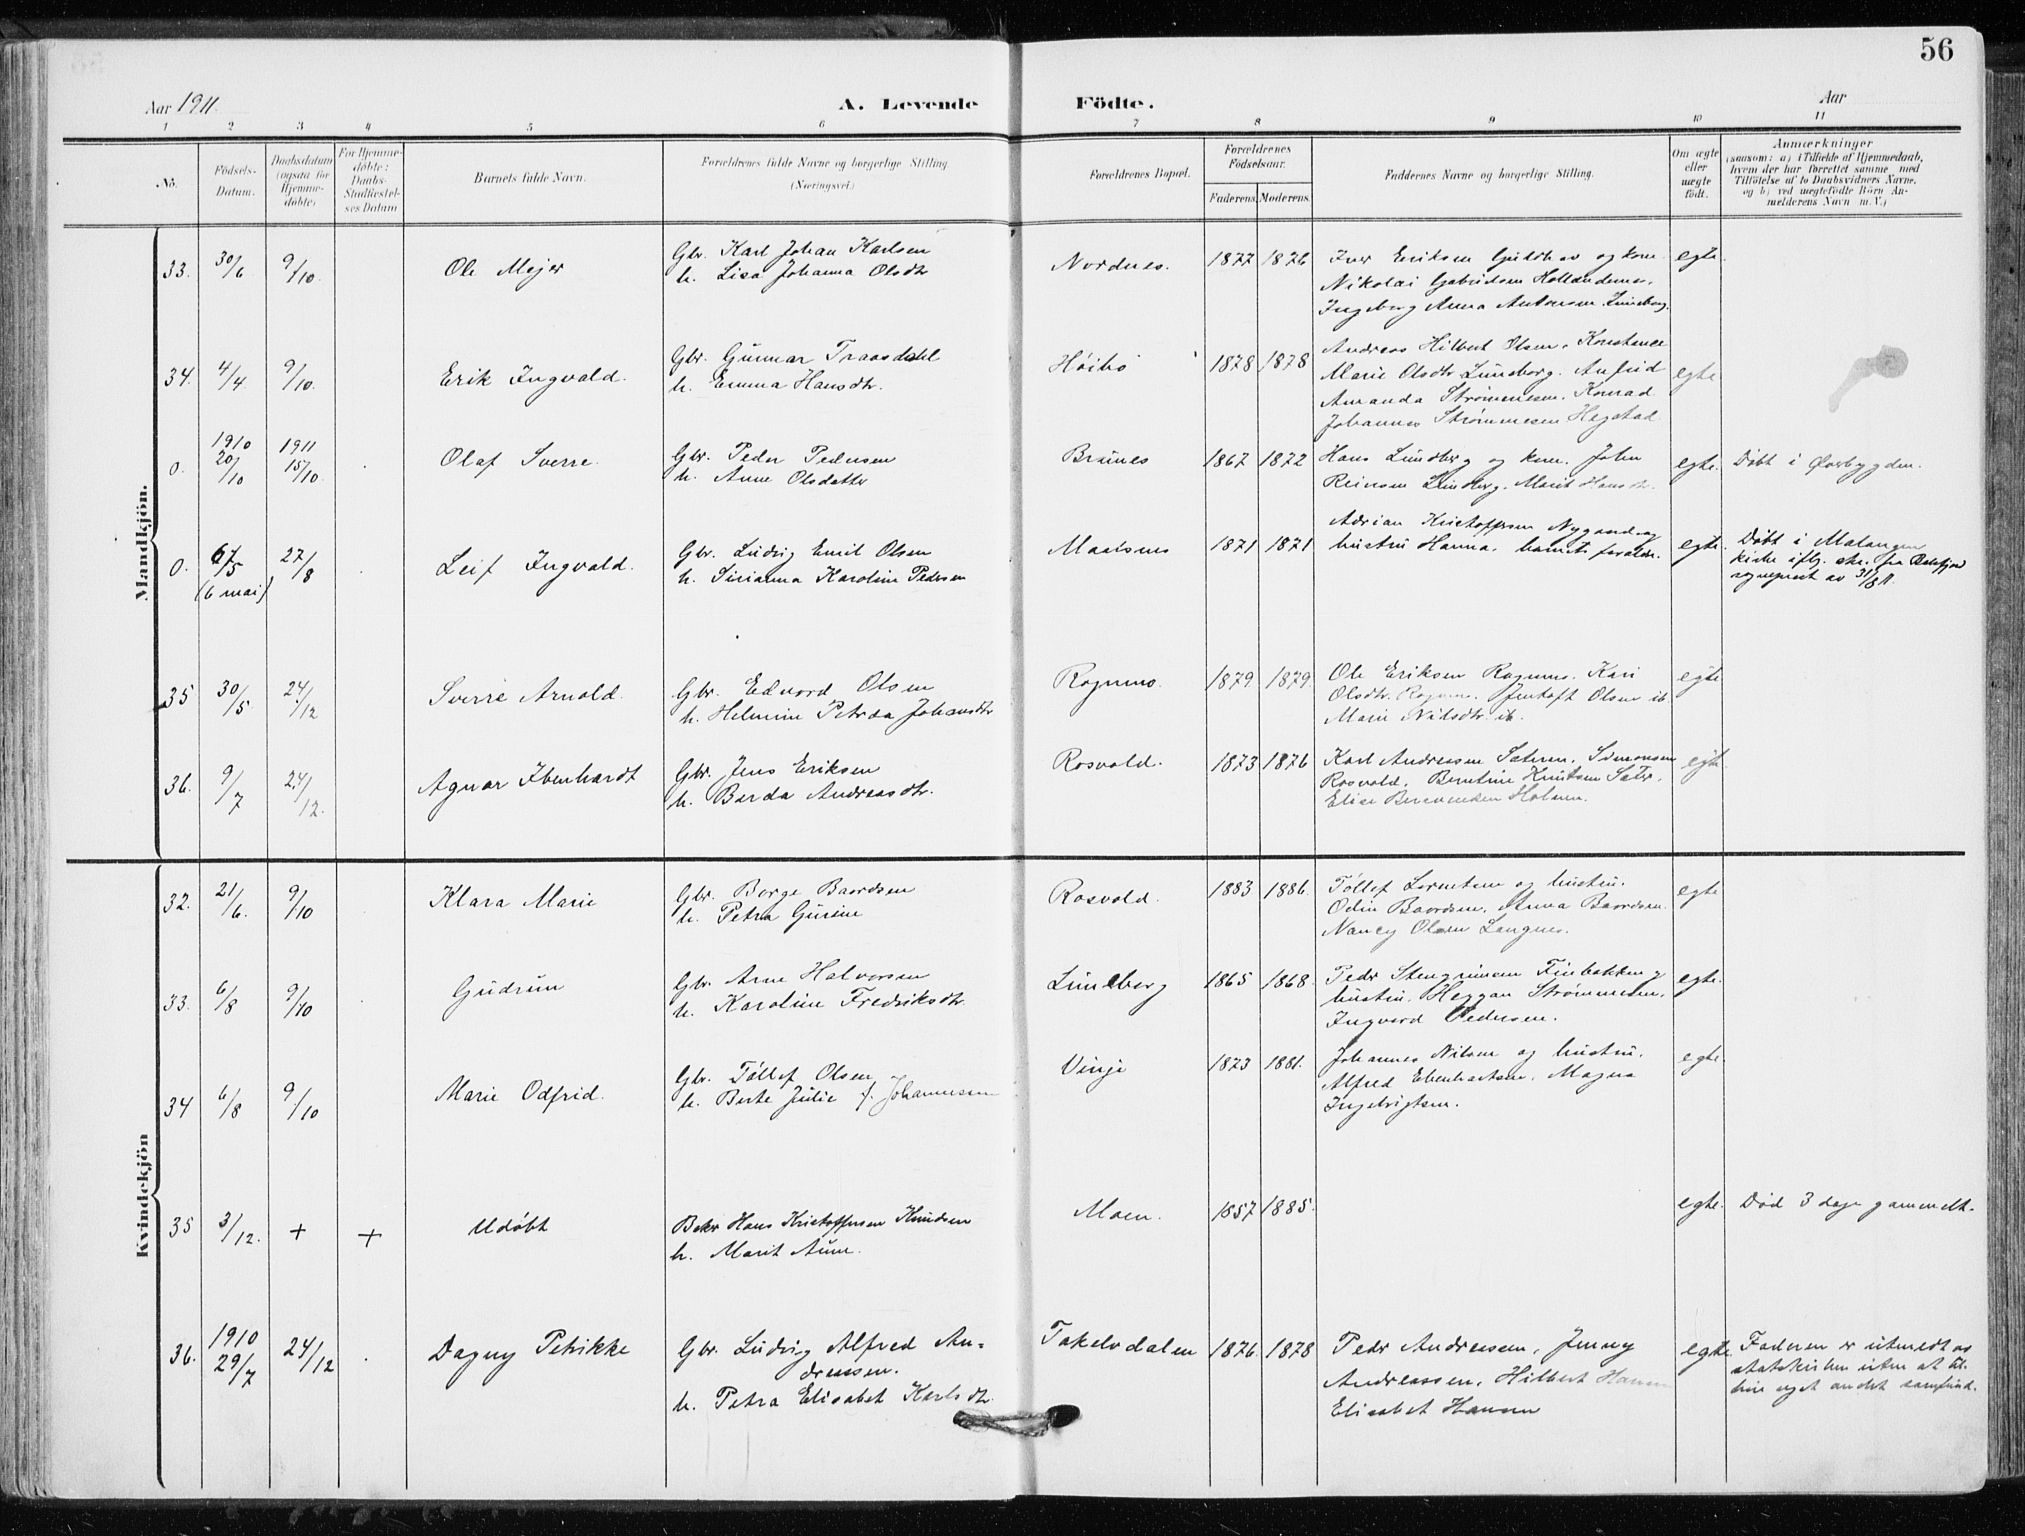 56
Aar 1911.
A. Levende Födte.
Aar
1 2 3 4 5 6 7 8 9 10 11
No.
Födsels-Datum.
Daabsdatum (ogsaa for Hjemme-döbte)
For Hjemme-döbte: Daabs-Stadfæstel-ses Datum
Barnets fulde Navn.
Forældrenes fulde Navne og borgerlige Stilling (Næringsvei.)
Forældrenes Bopæl.
Forældrenes Födselsaar.
Faderens. Moderens.
Faddernes Navne og borgerlige Stilling.
Om ægte eller uægte födt.
Anmærkninger
(saasom: a) i Tilfælde af Hjemmedaab,
hvem der har forrettet samme med
Tilföielse af to Daabsvidners Navne,
og b) ved uægtefödte Börn An-
melderens Navn m.V.)
Mandkjön.
33. 30/6 9/10. Ole Mejer
Gbr. Karl Johan Karlsen
h. Lisa Johanna Olsdtr
Nordnes. 1877 1876
Iver Eriksen og kone
Nikolai Gabrielsen
Ingeborg Anna
egte.
34. 4/4 9/10. Erik Ingvald.
Gbr. Gunnar Traasdahl
h. Emma Hansdtr.
Høibo 1878 1878
Andreas Hilbert Olsen. Konstance
Marie Olsdtr Lundberg. Anfrid
Amanda Strømmesen. Konrad
Johannes Strømmesen Hegstad
egte
0. 1910 20/10 1911 15/10. Olaf Sverre.
Gbr. Peder Pedersen
h. Anne Olsdatter
Brunes 1867 1872
Hans Lundberg og kone. John
Reinsen Lundberg. Marit Hansdtr.
egte. Døbt i Øverbygden.
0. 6/5 (6 mai) 27/8 Leif Ingvald.
Gbr. Ludvig Emil Olsen
h. Sirianna Karoline Pedersen
Maalsnes 1871 1871
Adrian Kristoffersen Nygaard og
hustru Hanna. barnets forældre.
egte. Døbt i Malangen
kirke iflg. skr. fra Balsfjord
sogneprest av 31/8 11.
35 30/5. 24/12 Sverre Arnold.
Gbr. Edvard Olsen
h. Helmine Petrea Johansdtr
Rognmo. 1879. 1879.
Ole Eriksen Rognmo. Kari
Olsdtr. Rognmo. Jentoft Olsen ib.
Marie Nilsdtr. ib.
egte
36. 9/7 24/12. Agnar Ibenhardt
Gbr. Jens Eriksen
h. Berda Andreasdtr.
Rosvold. 1873 1876
Karl Andreassen Simonsen
Rosvold. Berntine Knutsen
Elise Holmen.
egte
Kvindekjön
32. 21/6. 9/10 Klara Marie
Gbr. Borge Baardsen
h. Petra Gurine
Rosvold. 1883 1886.
Tollef Lorentsen og hustru.
Odin Baardsen. Anna Baardsen
Nancy Olsen Langnes.
egte
33. 6/8 9/10 Gudrun
Gbr. Arne Halvorsen
h. Karoline Fredriksdtr.
Lundberg 1865 1868.
Peder Stengrimsen Finbakken og
hustru. Heggan Strømmesen.
Ingvard Pedersen.
egte.
34 6/8 9/10 Marie Odfrid.
Gbr. Tollef Olsen
h. Berte Julie f. Johannesen
Vinje 1873 1881.
Johannes Nilsen og hustru.
Alfred Ebenhartsen. Magna
Ingebrigtsen.
egte.
35 3/12. + + Udøbt
Hans Kristoffersen Knudsen
h. Marit Aune.
Moen. 1857 1885.
egte. Død 3 dage gammelt.
36. 1910 29/7 24/12 Dagny Petrikke
Gbr. Ludvig Alfred An-
dreassen.
h. Petra Elisabet Karlsdtr.
Takelvdalen 1876. 1878
Peder Andreassen, Jenny
Andreassen, Hilbert Hansen
Elisabet Hansen
egte. Faderen er utmeldt av
statskirken uten at til-
høre noget andet samfund.